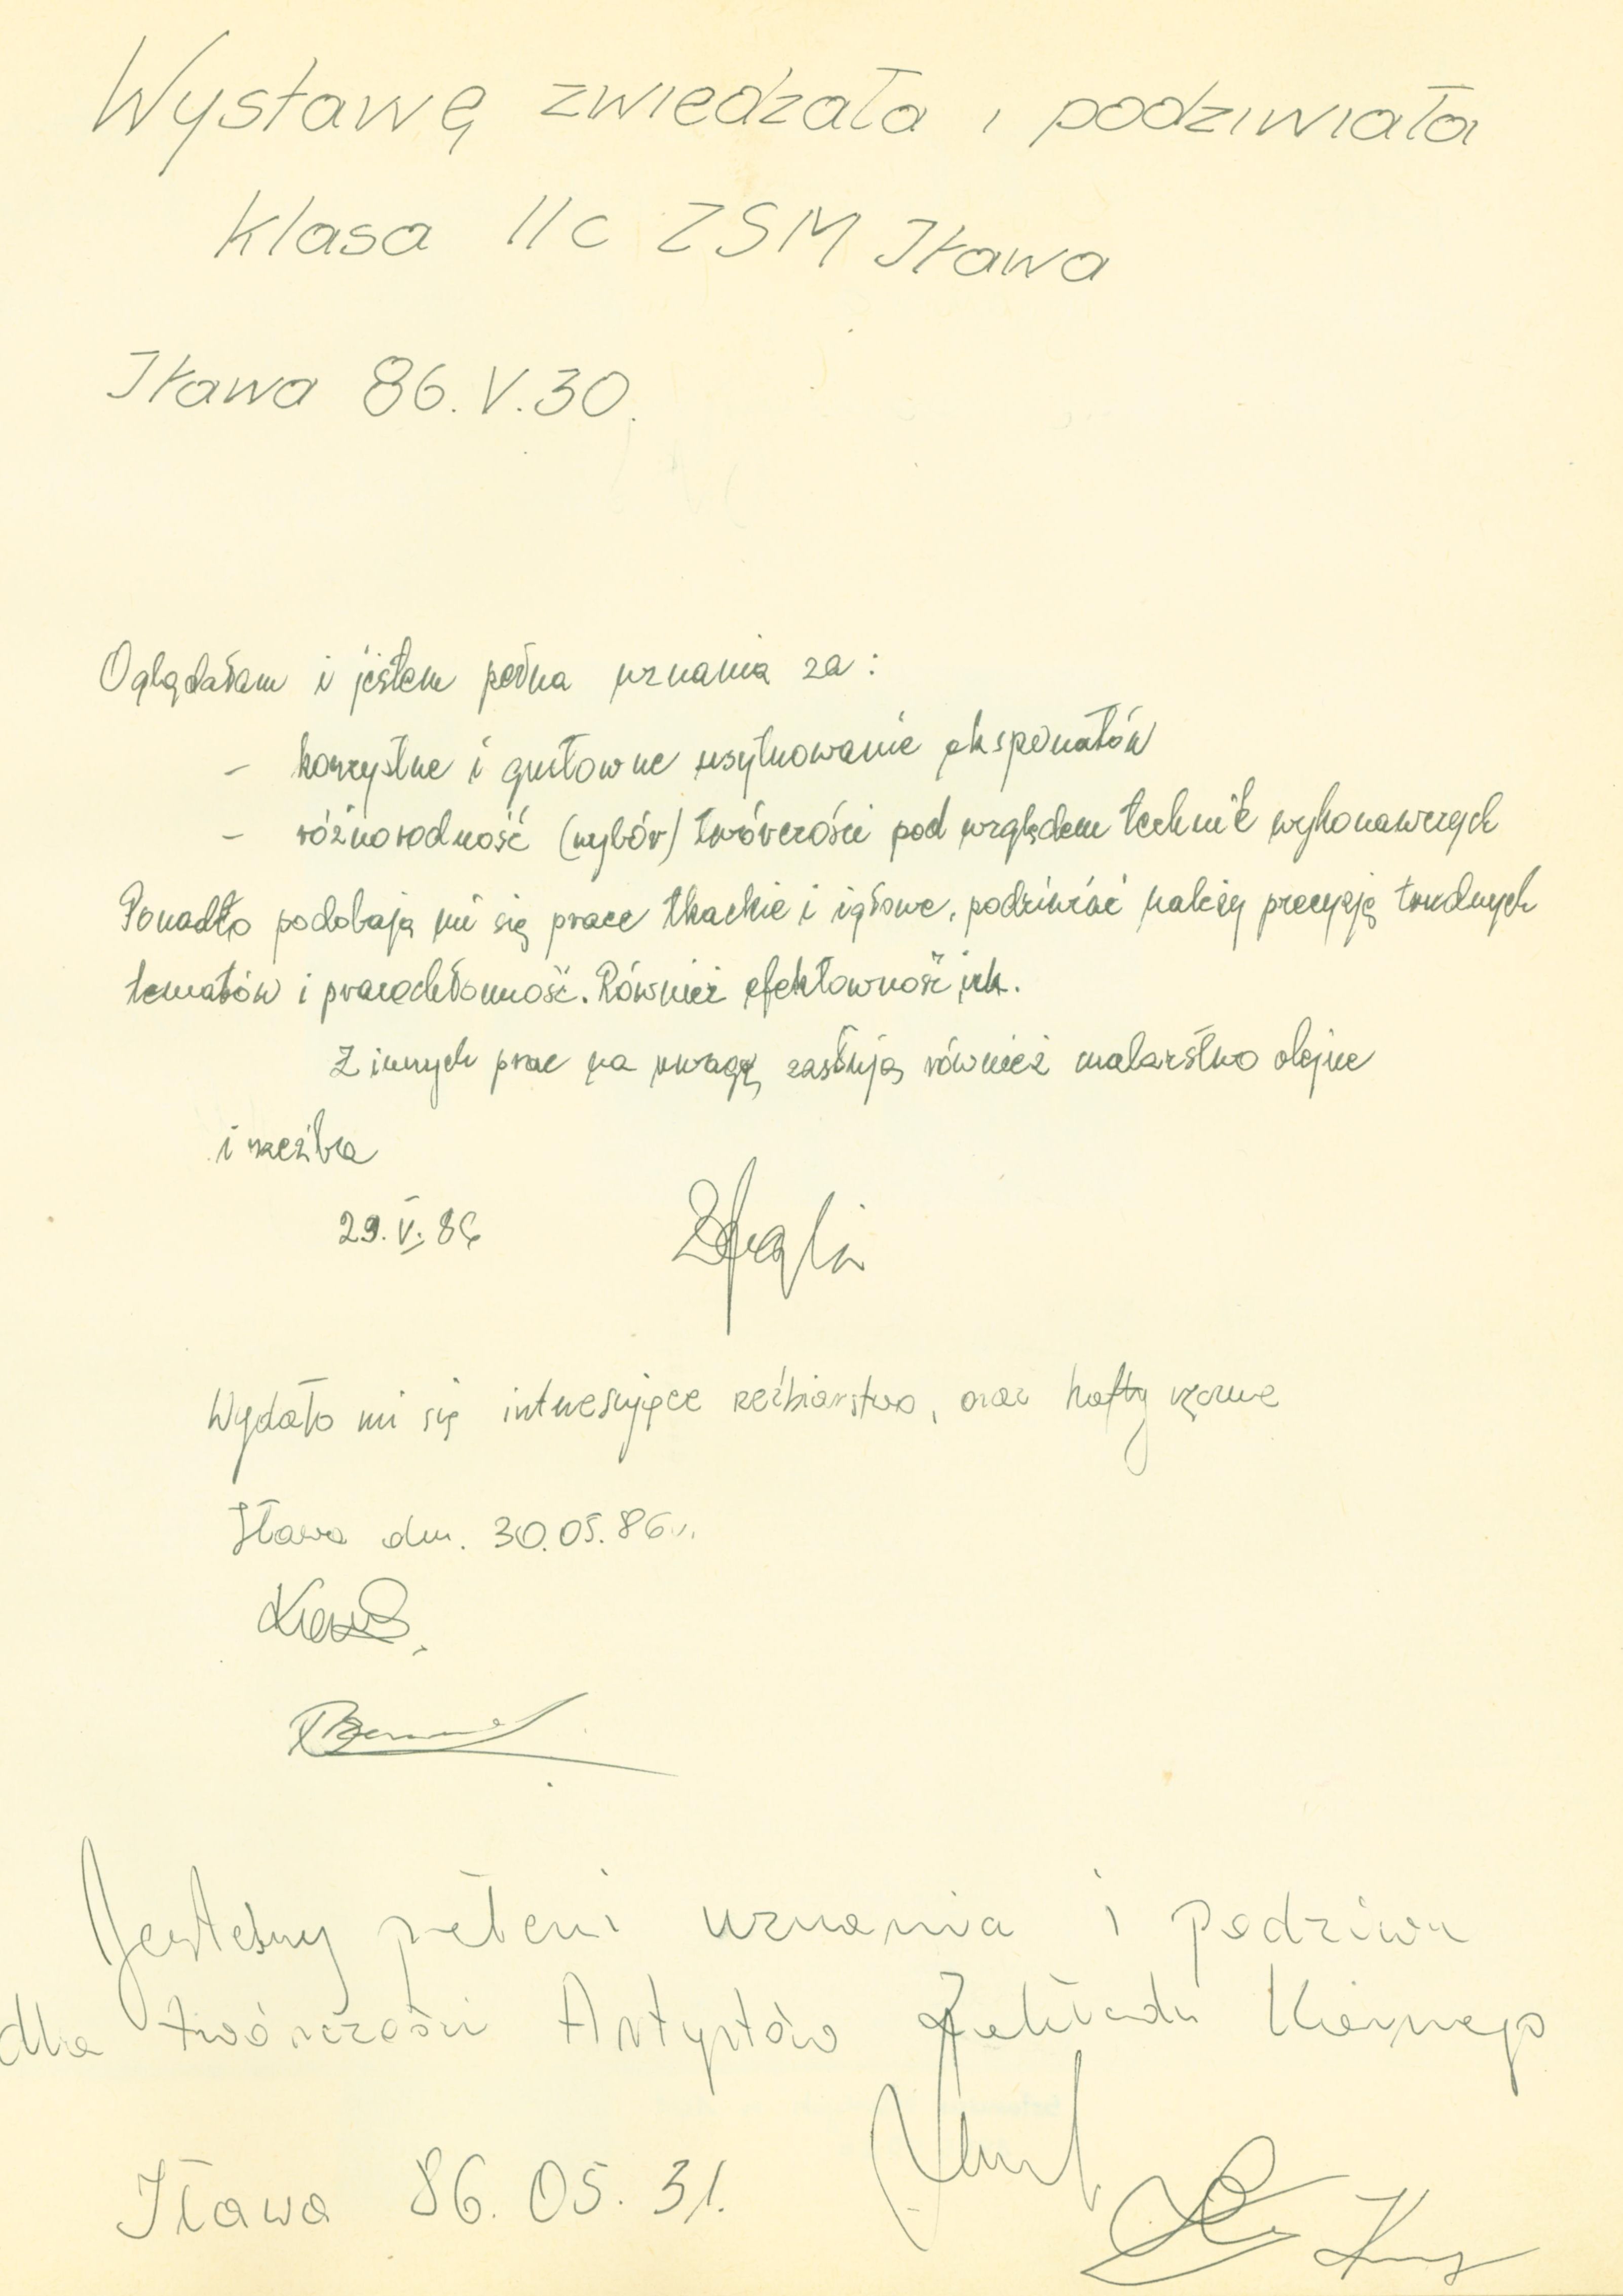 Wystawę zwiedzała i podziwiała
klasa IIc ZSM Iława
Iława 86.V.30.
Oglądałam i jestem pełna uznania za:
- korzystne i gustowne usytuowanie eksponatów
- różnorodność (wybór) twórczości pod względem technik wykonawczych
Ponadto podobają mi się prace tkackie i igłowe, podziwiać należy precyzję trudnych
tematów i pracochłonność. Również efektowność ich.
Z innych prac na uwagę zasłują również malarstwo olejne
i rzeźba
29.V.86
Wydało mi się interesujące rzeźbiarstwo, oraz hafty
Iława dn. 30.05.86r.
Jesteśmy pełeni uznania i podziwu
dla twórczości Artystów Zakładu Karnego
Iława 86.05.31.